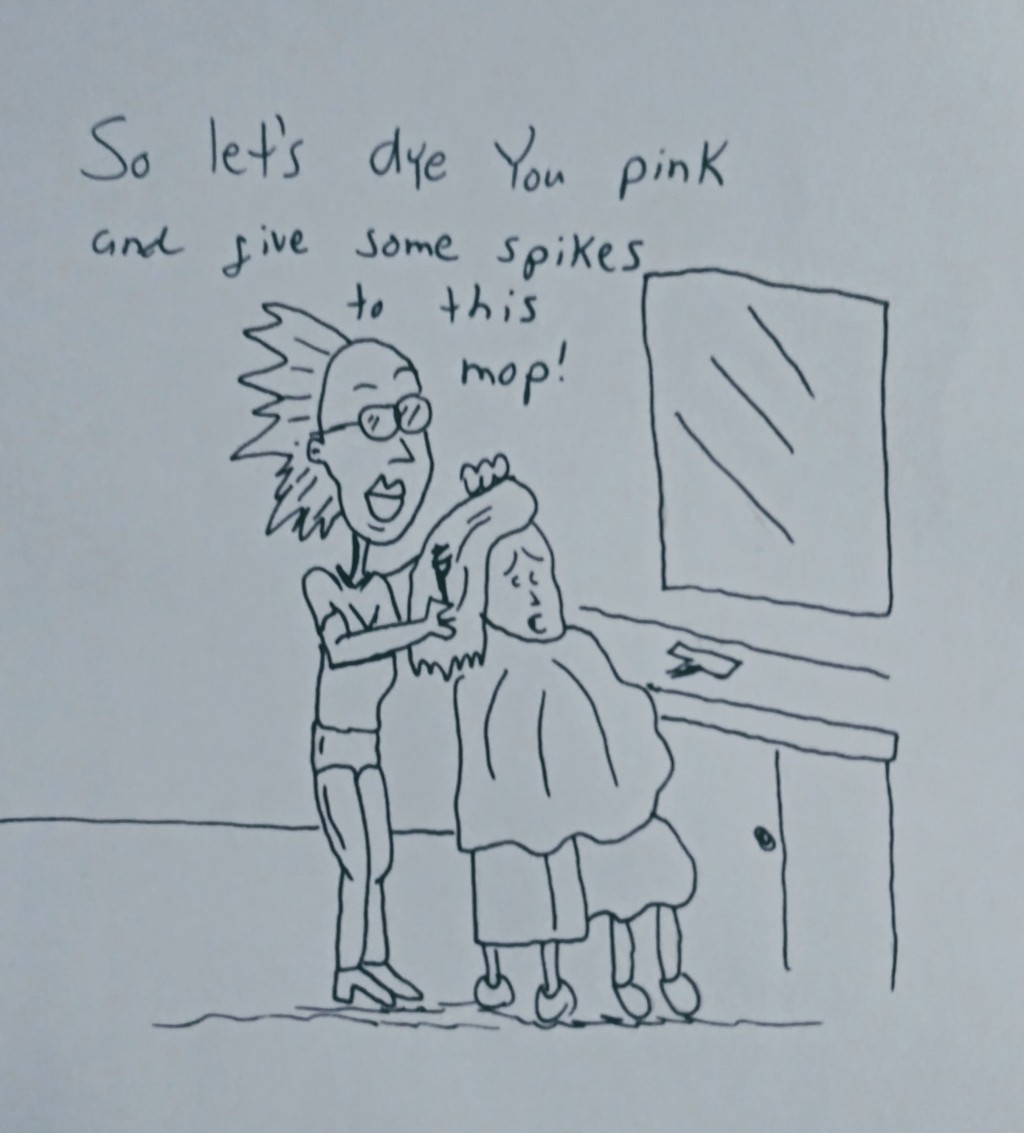 So let's dye You pink
and give some spikes
to this
mop!